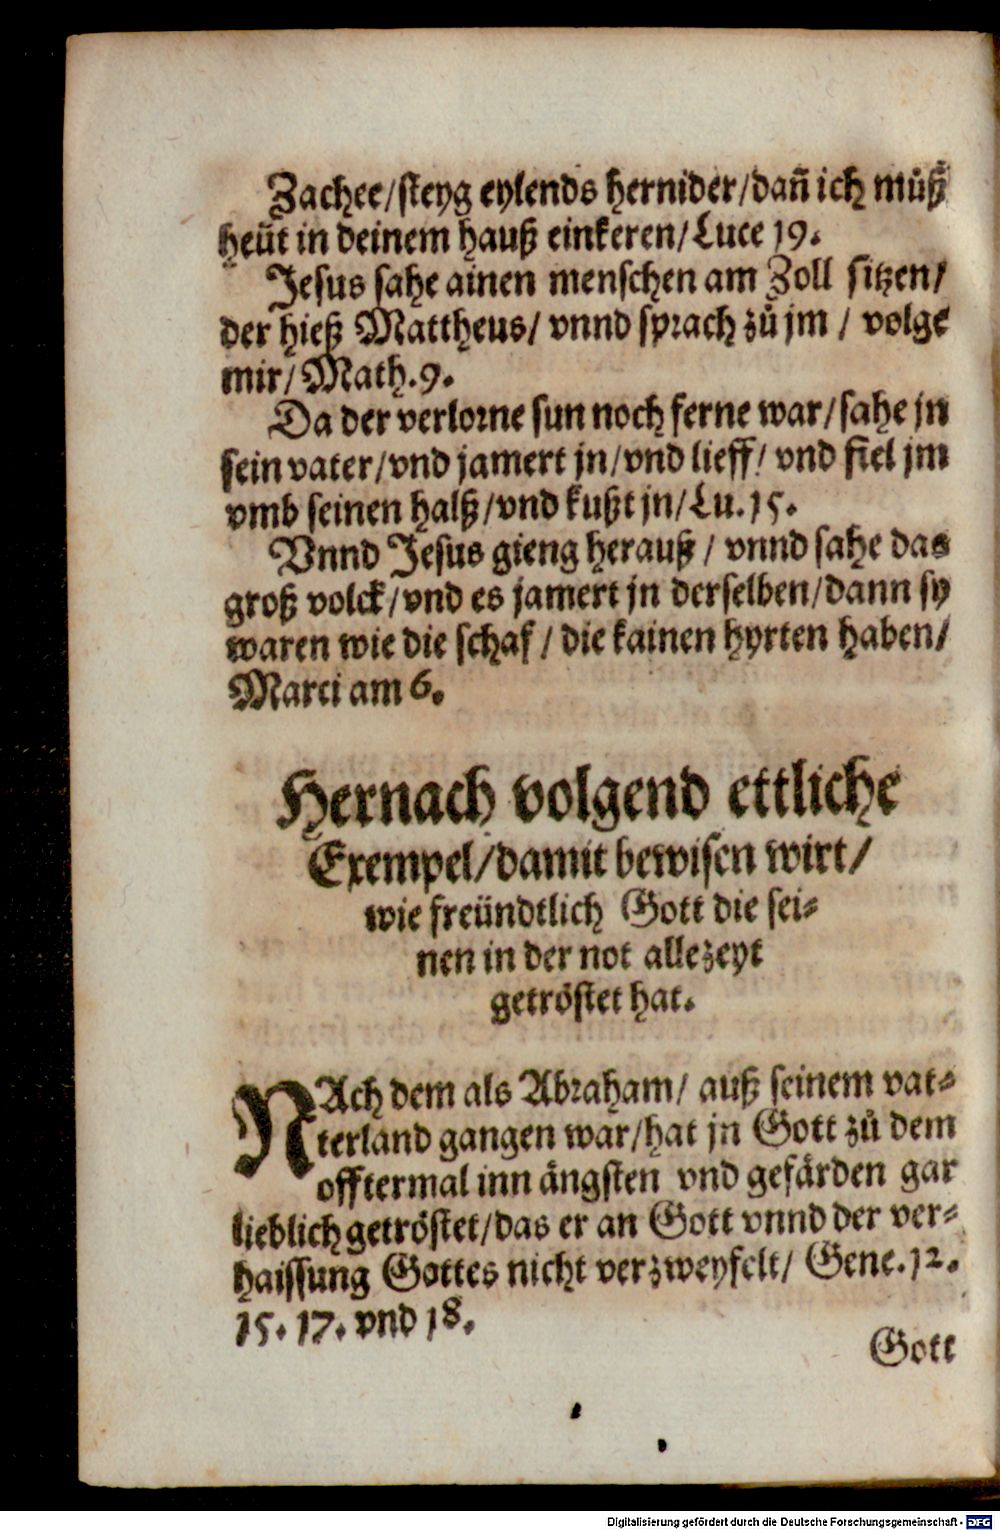 Zachee/steyg eylends hernider/dañ ich můß
heüt in deinem hauß einkeren/Luce 19.
Jesus sahe ainen menschen am Zoll sitzen/
der hieß Mattheus/ vnnd sprach zů jm / volge
mir/ Math.9.
Da der verlorne sun noch ferne war/sahe jn
sein vater/vnd jamert jn/vnd lieff/ vnd fiel jm
vmb seinen halß/vnd kußt jn/Lu.15.
Vnnd Jesus gieng herauß / vnnd sahe das
groß volck/vnd es jamert jn derselben/dann sy
waren wie die schaf / die kainen hyrten haben/
Marci am 6.
Hernach volgend ettliche
Exempel/damit bewisen wirt/
wie freündtlich Gott die sei⸗
nen in der not allezeyt
getröstet hat.
NAch dem als Abraham/ auß seinem vat⸗
terland gangen war/hat jn Gott zů dem
offtermal inn ängsten vnd gefärden gar
lieblich getröstet/das er an Gott vnnd der ver⸗
haissung Gottes nicht verzweyfelt/ Gene.12.
15. 17. vnd 18.
Gott
Digitalisierung gefördert durch die Deutsche Forschungsgemeinschaft - DFG